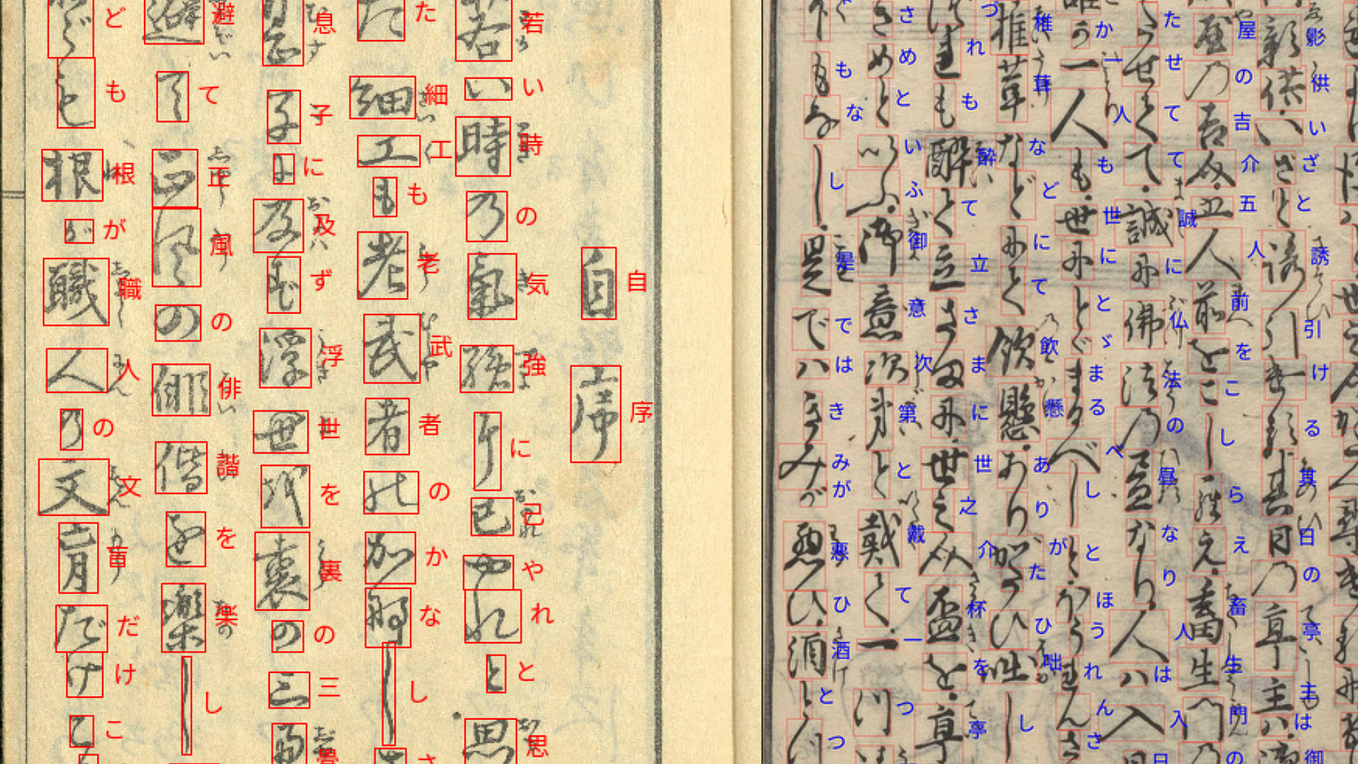 自序
若い時の気強に己やれと思
た細工も老武者のかなしさ
息子に及ず浮世を裏の三
避て正風の俳諧を楽し
ども根が職人の文盲だけこ
影供いざと誘引ける其日の亭主は御
屋の吉介五人前をこしらえ畜生門の
たせてて誠に仏法の昼なり人は入日
か一人も世にとゞまるべしとほうれんさ
椎茸などにて飲懸ありがたひ咄し
づれも酔て立さまに世之介杯を亭
さめといふ御意次第と戴て一つ
もなし是ではきみが悪ひ酒とつ